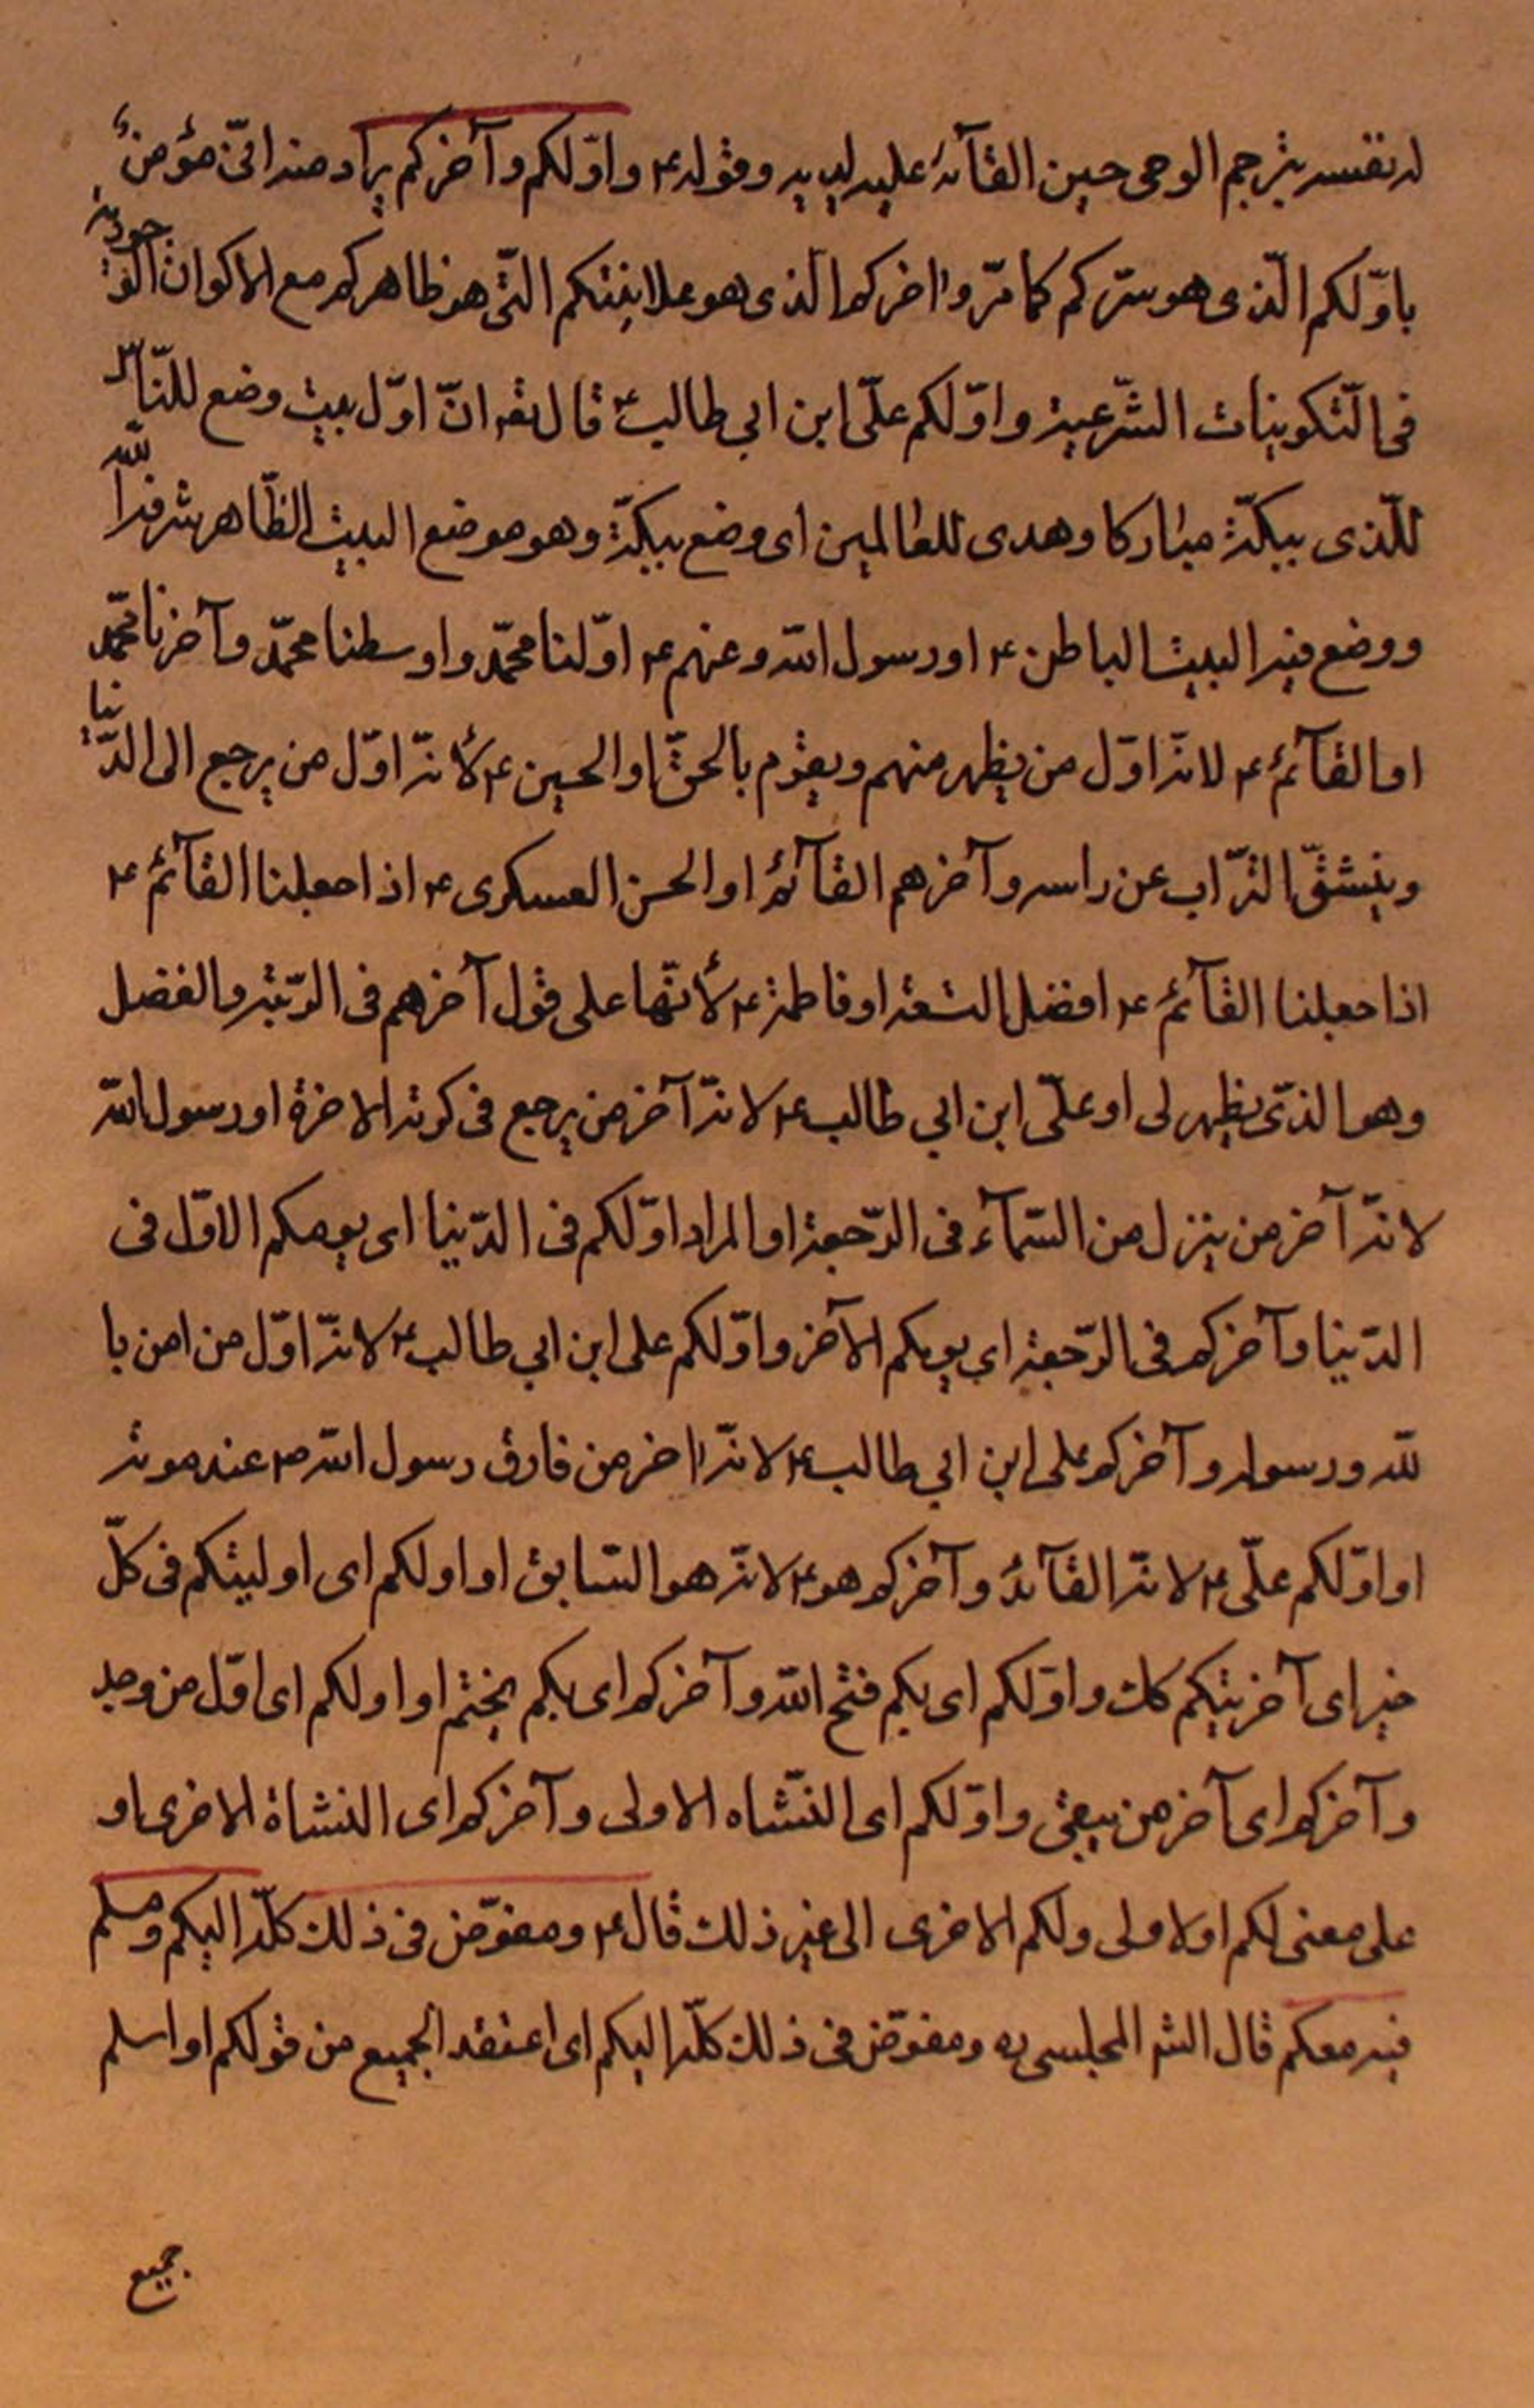 له نفسه يترجم الوحى حين القائه عليه لديه وقوله ع واوّلكم وآخركم يراد منه انّى مؤمن
باوّلكم الّذى هو سرّكم كما مرّ واخركم الذى هو علانيتكم الّتى هو ظاهركم مع الاكوان الوجوديّة
فى التّكوينات الشّرعية واوّلكم علّى ابن ابي طالب ع قال تعه انّ اوّل بيت وضع للنّاس
للّذى ببكّة مباركا وهدى للعالمين اى وضع ببكّة وهو موضع البيت الظّاهر شرفه الله
ووضع فيه البيت الباطن ع او رسول الله وعنهم ع اوّلنا محمّد واوسطنا محمّد وآخرنا محمّد
او القآئم ع لانّه اوّل من يظهر منهم ويقوم بالحقّ او الحسين ع لأنّه اوّل من يرجع الى الدّنيا
وينشقّ التّراب عن راسه وآخرهم القآئم او الحسن العسكرى ع اذا جعلنا القآئم ع
اذا جعلنا القآئم ع افضل التسعة او فاطمة ع لأنّها على قول آخرهم فى الرّتبة والفضل
وهو الذى يظهر لى او علّى ابن ابي طالب ع لانّه آخر من يرجع فى كرته الاخرة او رسول الله
لانّه آخر من ينزل من السّمآء فى الرّجعة او المراد اوّلكم فى الدّنيا اى يومكم الاوّل فى
الدّنيا وآخركم فى الرّجعة اى يومكم الآخر واوّلكم على ابن ابي طالب ع لانّه اوّل من امن با
لله ورسوله وآخركم على ابن ابي طالب ع لانّه اخر من فارق رسول الله ص عند موته
او اوّلكم علّى ع لانّه القآئد وآخركم هو ع لانّه هو السّابق او اولكم اى اوليتكم فى كلّ
خير اى آخريتكم كك واوّلكم اى بكم فتح الله وآخركم اى بكم يختم او اولكم اى اوّل من وجد
وآخركم اى آخر من يبقى واوّلكم اى النّشاه الاولى وآخركم اى النشاة الاخرى او
على معنى لكم اولاولى ولكم الاخرى الى غير ذلك قال ع ومفوّض فى ذلك كلّه اليكم ومسلم
فيه معكم قال الشر المجلسى ره ومفوّض فى ذلك كلّه اليكم اى اعتقد الجميع من قولكم او اسلم
جميع